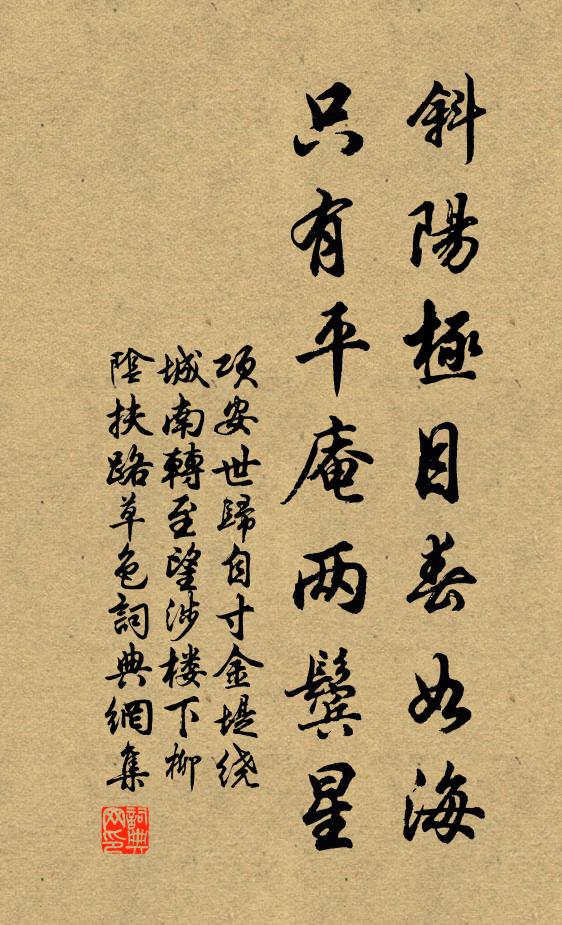 斜陽極目春如海
只有平庵两鬓星
项安世歸自寸金堤绕
城南轉至望涉楼下柳
陰扶路草色詞典網集
詞典网印